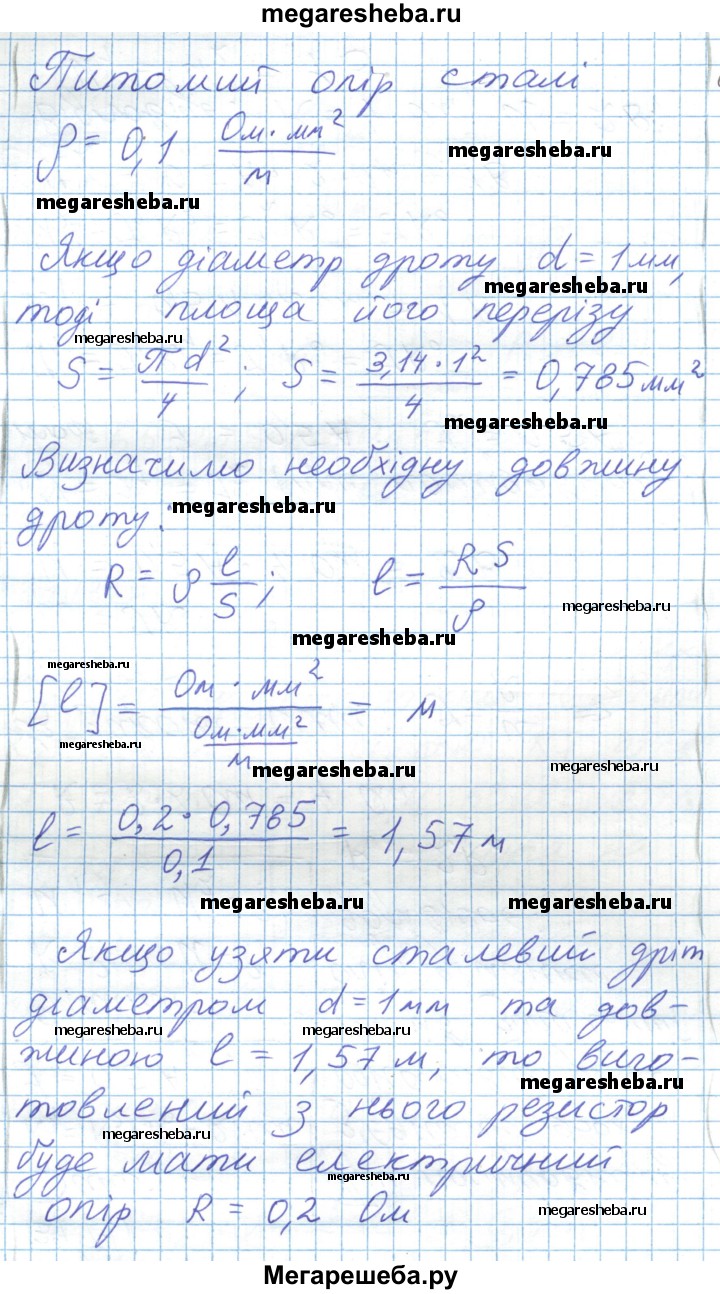 megaresheba.ru
Питомий опір сталі
ρ = 0,1 Ом·мм²/м
megaresheba.ru
megaresheba.ru
Якщо діаметр дроту d = 1 мм,
megaresheba.ru
тоді площа його перерізу
megaresheba.ru
S = Пd²/4; S = 3,14·1²/4 = 0,785 мм²
megaresheba.ru
Визначимо необхідну довжину
дроту:
megaresheba.ru
R = ρ l/S; l = RS/ρ
megaresheba.ru
megaresheba.ru
megaresheba.ru
[l] = Ом·мм²/(Ом·мм²/м) = м
megaresheba.ru
megaresheba.ru
megaresheba.ru
l = 0,2·0,785/0,1 = 1,57 м
megaresheba.ru
megaresheba.ru
Якщо узяти сталевий дріт
діаметром d = 1 мм та дов-
megaresheba.ru
megaresheba.ru
жиною l = 1,57 м, то виго-
megaresheba.ru
товлений з нього резистор
megaresheba.ru
буде мати електричний
megaresheba.ru
опір R = 0,2 Ом
megaresheba.ru
Мегарешеба.ру